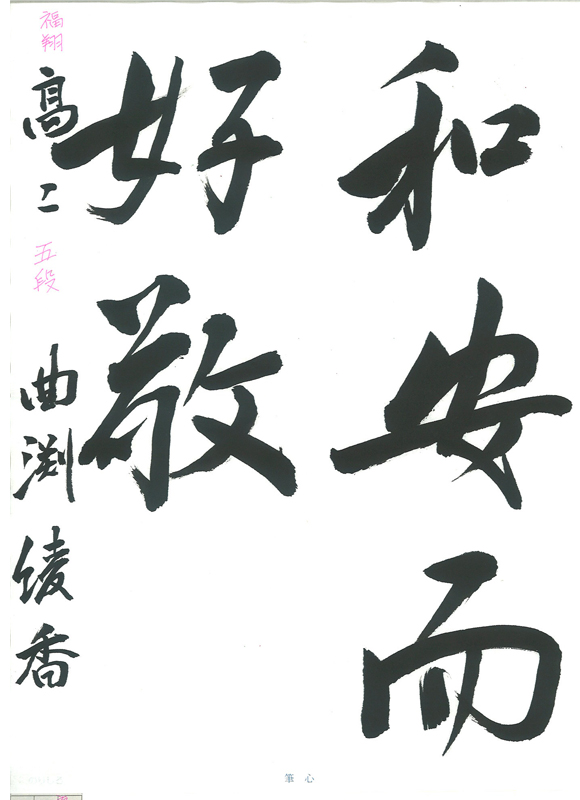 和安而
好敬
福翔
高二 五段 曲渕綾香
筆心